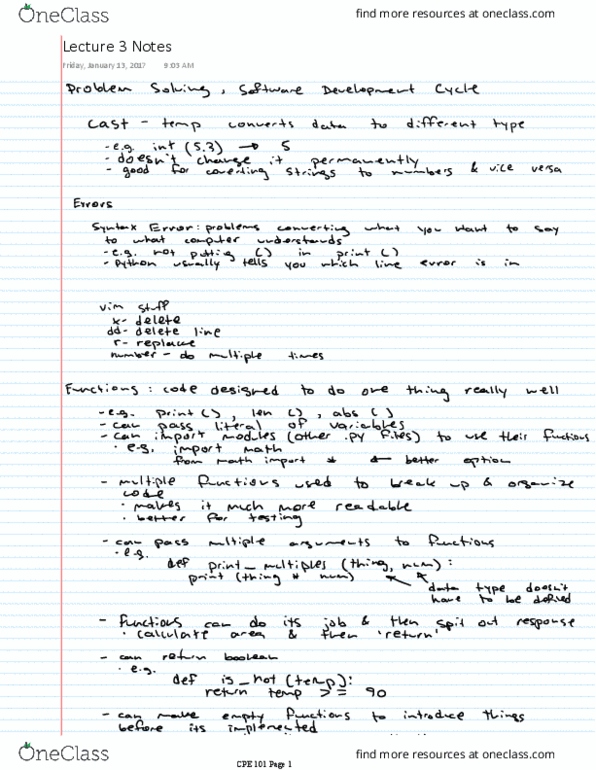 OneClass
find more resources at oneclass.com
Lecture 3 Notes
Friday, January 13, 2017 9:03 AM
Problem Solving, Software Development Cycle
Cast - temp converts data to different type
- e.g. int (5.3) → 5
- doesn't change it permanently
- good for coverting strings to numbers & vice versa
Errors
Syntax Error: problems converting what you want to say
to what computer understands
- e.g. not putting () in print ()
- Python usually tells you which line error is in
vim stuff
x- delete
dd- delete line
r- replace
number - do multiple times
Functions: code designed to do one thing really well
- e.g. print (), len (), abs ()
- can pass literal of variables
- can import modules (other .py files) to use their functions
• e.g. import math
from math import * ← better option
- multiple functions used to break up & organize
code
• makes it much more readable
• better for testing
- can pass multiple arguments to functions
• e.g.
def print_multiples (thing, num):
print (thing * num)
data type doesn't
have to be defined
- functions can do its job & then spit out response
• calculate area & then 'return'
- can return boolean
• e.g.
def is_hot (temp):
return temp >= 90
- can make empty functions to introduce things
before its implemented
OneClass
CPE 101 Page 1
find more resources at oneclass.com